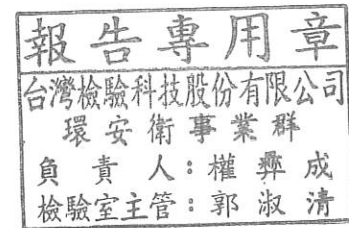 報告專用章
台灣檢驗科技股份有限公司
環安衛事業群
負責人：權彛成
檢驗室主管：郭淑清